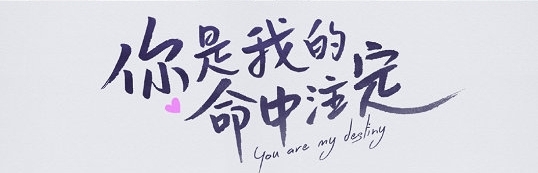 你是我的
命中注定
You are my destiny